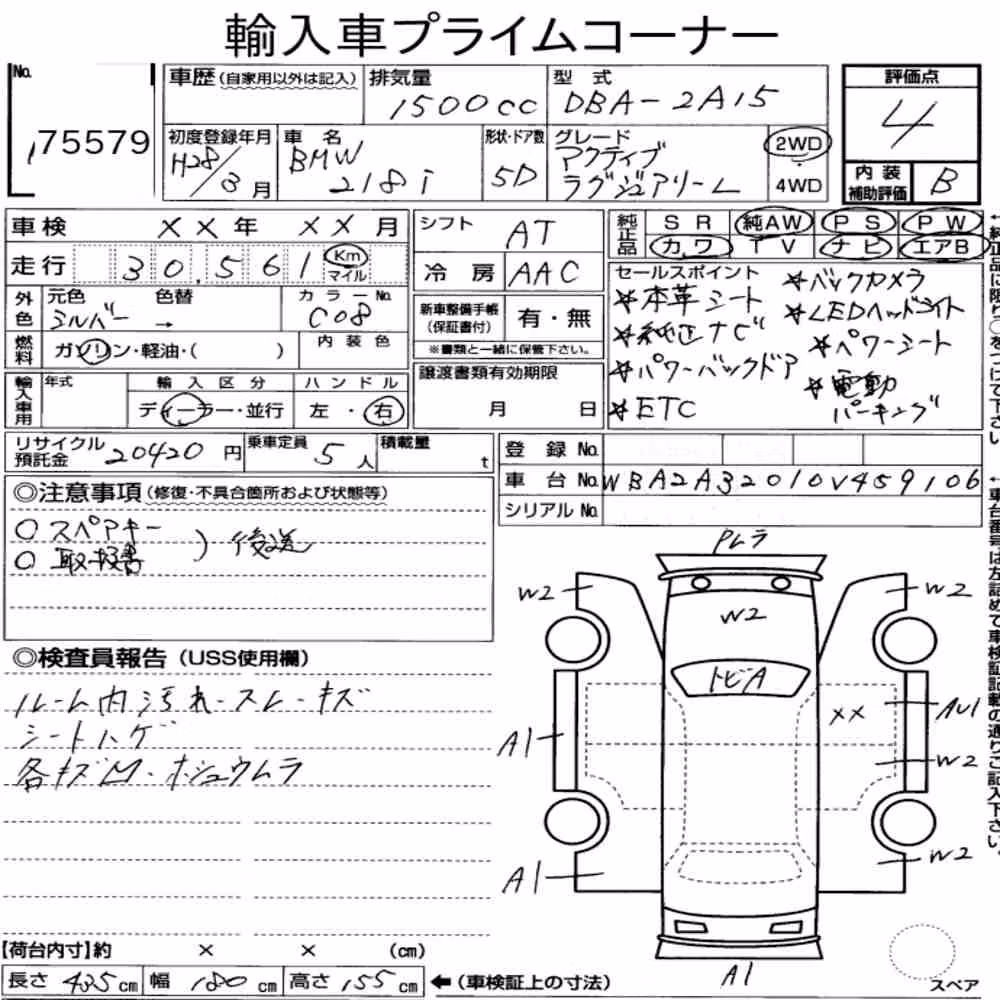 輸入車プライムコーナー
No. 75579
車歴 (自家用以外は記入) 排気量 1500cc 型式 DBA-2A15
評価点 4
初度登録年月 H28/3月 車名 BMW 218i 形状・ドア数 5D グレード アクティブ ラグジュアリーL 2WD 4WD
内装補助評価 B
車検 ××年 ××月
シフト AT
純正品 SR 純AW PS PW
カワ TV ナビ エアB
走行 30,561 Km マイル
冷房 AAC
セールスポイント
☆本革シート ☆バックカメラ
☆純正ナビ ☆LEDヘッドライト
☆パワーバックドア ☆パワーシート
☆ETC ☆電動パーキング
外色 元色 シルバー → 色替 カラーNo. C08
新車整備手帳(保証書付) 有・無
※書類と一緒に保管下さい。
燃料 ガソリン・軽油・( ) 内装色
譲渡書類有効期限 月 日
輸入車用 年式 輸入区分 ディーラー・並行 ハンドル 左・右
リサイクル預託金 20420円 乗車定員 5人 積載量 t
登録No.
車台No. WBA2A32010V459106
シリアルNo.
←純正品に限り○をつけて下さい。
←車台番号は左詰めで車検証記載の通りご記入下さい。
◎注意事項 (修復・不具合箇所および状態等)
○スペアキー
○取扱書 ) 後送
◎検査員報告 (USS使用欄)
ルーム内汚れ・スレ・キズ
シートハゲ
各キズ凹・ホシュウムラ
PLラ
W2 W2 W2
トビA
×× AU1
A1 W2
A1 W2
A1
スペア
【荷台内寸】約 × × (cm)
長さ 435cm 幅 180cm 高さ 155cm ←(車検証上の寸法)